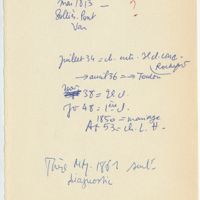 mai 1813 — ?
Solliès-Pont
Var
juillet 34 = ch.
Rochefort
→ avril 36 → Toulon
mars 38 = 2è cl.
Jr 48 = 1ère cl.
1850 = mariage
At 53 = ch. L. H.
Thèse Mtp. 1861 sur le
diagnostic